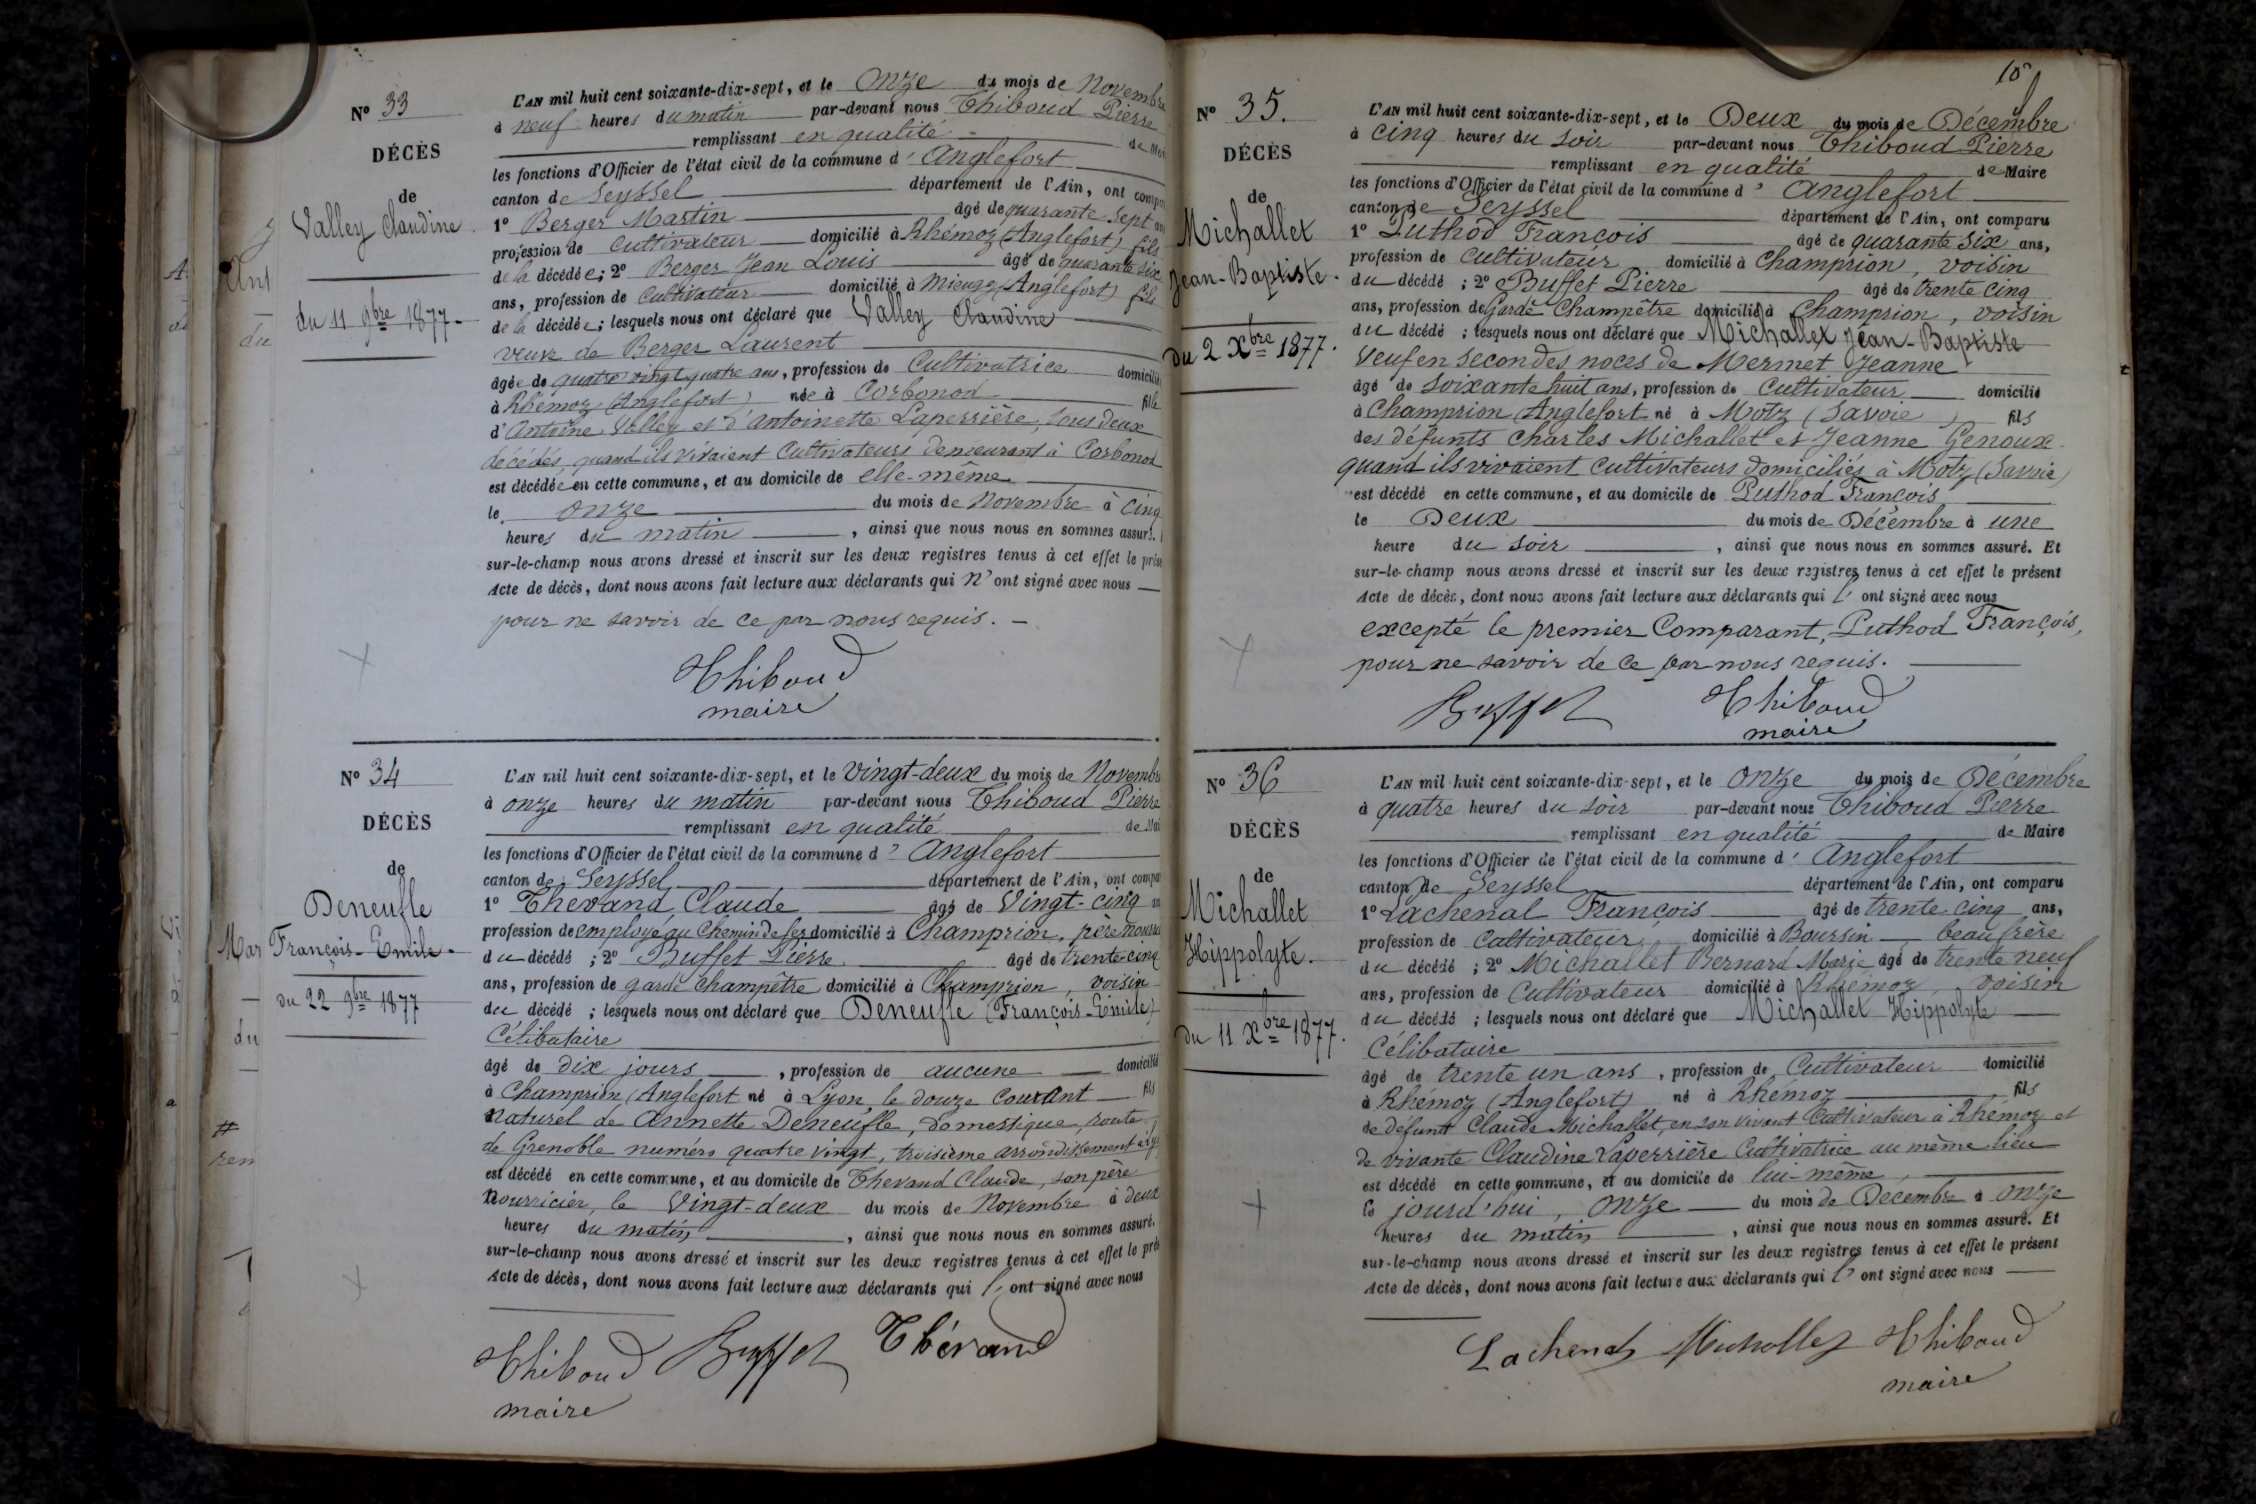 N° 33
DÉCÈS
de
Valley Claudine
du 11 9bre 1877
L'AN mil huit cent soixante-dix-sept, et le onze du mois de Novembre
à neuf heures du matin par-devant nous Thiboud Pierre
remplissant en qualité de Mai
les fonctions d'Officier de l'état civil de la commune d'Anglefort
canton de Seyssel département de l'Ain, ont compa
1° Berger Martin âgé de quarante sept an
profession de cultivateur domicilié à Rhémoz (Anglefort) fils
de la décédée; 2° Berger Jean Louis âgé de quarante six
ans, profession de Cultivateur domicilié à Mieugy (Anglefort) fils
de la décédée; lesquels nous ont déclaré que Valley Claudine
veuve de Berger Laurent
âgée de quatre vingt quatre ans, profession de Cultivatrice domicilié
à Rhémoz (Anglefort) née à Corbonod fille
d'Antoine Valley et d'Antoinette Laperrière, tous deux
décédés, quand ils vivaient Cultivateurs demeurant à Corbonod
est décédée en cette commune, et au domicile de elle-même
le onze du mois de Novembre à cinq
heures du matin, ainsi que nous nous en sommes assuré.
sur-le-champ nous avons dressé et inscrit sur les deux registres tenus à cet effet le prése
Acte de décès, dont nous avons fait lecture aux déclarants qui n'ont signé avec nous
pour ne savoir de ce par nous requis.
Thiboud
maire
N° 34
DÉCÈS
de
Deneufle
François-Emile
du 22 9bre 1877
L'AN mil huit cent soixante-dix-sept, et le vingt-deux du mois de Novembre
à onze heures du matin par-devant nous Thiboud Pierre
remplissant en qualité de Mai
les fonctions d'Officier de l'état civil de la commune d'Anglefort
canton de Seyssel département de l'Ain, ont compa
1° Thevand Claude âgé de Vingt-cinq an
profession de employé au Chemin de fer domicilié à Champrion, père nourri
du décédé; 2° Buffet Pierre âgé de trente cinq
ans, profession de garde champêtre domicilié à Champrion, voisin
du décédé; lesquels nous ont déclaré que Deneufle (François-Emile)
Célibataire
âgé de dix jours, profession de aucune domicilié
à Champrion (Anglefort né à Lyon, le douze courant fils
naturel de Annette Deneufle, domestique, route
de Grenoble numéro quatre vingt, troisième arrondissement à Ly
est décédé en cette commune, et au domicile de Thevand Claude, son père
nourricier, le Vingt-deux du mois de Novembre à deux
heures du matin, ainsi que nous nous en sommes assuré.
sur-le-champ nous avons dressé et inscrit sur les deux registres tenus à cet effet le prés
Acte de décès, dont nous avons fait lecture aux déclarants qui l'ont signé avec nous
Thiboud Buffet Thévand
maire
10
N° 35.
DÉCÈS
de
Michallet
Jean-Baptiste.
du 2 Xbre 1877.
L'AN mil huit cent soixante-dix-sept, et le Deux du mois de Décembre
à cinq heures du soir par-devant nous Thiboud Pierre
remplissant en qualité de Maire
les fonctions d'Officier de l'état civil de la commune d'Anglefort
canton de Seyssel département de l'Ain, ont comparu
1° Puthod François âgé de quarante six ans,
profession de Cultivateur domicilié à Champrion, voisin
du décédé; 2° Buffet Pierre âgé de trente cinq
ans, profession de Garde Champêtre domicilié à Champrion, voisin
du décédé; lesquels nous ont déclaré que Michallet Jean-Baptiste
Veuf en secondes noces de Mermet Jeanne
âgé de soixante huit ans, profession de Cultivateur domicilié
à Champrion (Anglefort né à Motz (Savoie) fils
des défunts Charles Michallet et Jeanne Genoux
quand ils vivaient cultivateurs domiciliés à Motz (Savoie)
est décédé en cette commune, et au domicile de Puthod François
le Deux du mois de Décembre à une
heure du soir, ainsi que nous nous en sommes assuré. Et
sur-le-champ nous avons dressé et inscrit sur les deux registres tenus à cet effet le présent
Acte de décès, dont nous avons fait lecture aux déclarants qui l'ont signé avec nous
excepté le premier Comparant, Puthod François,
pour ne savoir de ce par nous requis.
Buffet Thiboud
maire
N° 36
DÉCÈS
de
Michallet
Hippolyte.
du 11 Xbre 1877.
L'AN mil huit cent soixante-dix-sept, et le onze du mois de Décembre
à quatre heures du soir par-devant nous Thiboud Pierre
remplissant en qualité de Maire
les fonctions d'Officier de l'état civil de la commune d'Anglefort
canton de Seyssel département de l'Ain, ont comparu
1° Lachenal François âgé de trente cinq ans,
profession de Cultivateur, domicilié à Boursin beau frère
du décédé; 2° Michallet Bernard Marie âgé de trente neuf
ans, profession de Cultivateur domicilié à Rhémoz, voisin
du décédé; lesquels nous ont déclaré que Michallet Hippolyte
Célibataire
âgé de trente un ans, profession de Cultivateur domicilié
à Rhémoz (Anglefort) né à Rhémoz fils
de défunt Claude Michallet, en son vivant Cultivateur à Rhémoz et
de vivante Claudine Laperrière Cultivatrice au même lieu
est décédé en cette commune, et au domicile de lui-même,
le jourd'hui, onze du mois de Décembre à onze
heures du matin, ainsi que nous nous en sommes assuré. Et
sur-le-champ nous avons dressé et inscrit sur les deux registres tenus à cet effet le présent
Acte de décès, dont nous avons fait lecture aux déclarants qui l'ont signé avec nous
Lachenal Michallet Thiboud
maire